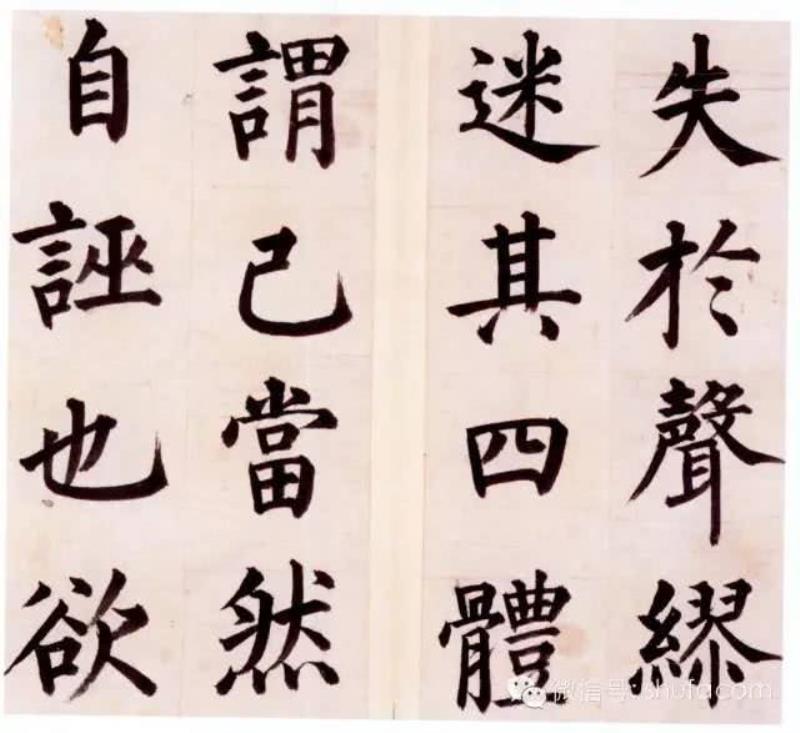 失於聲繆
迷其四體
謂己當然
自誣也欲
微信号:shufacom